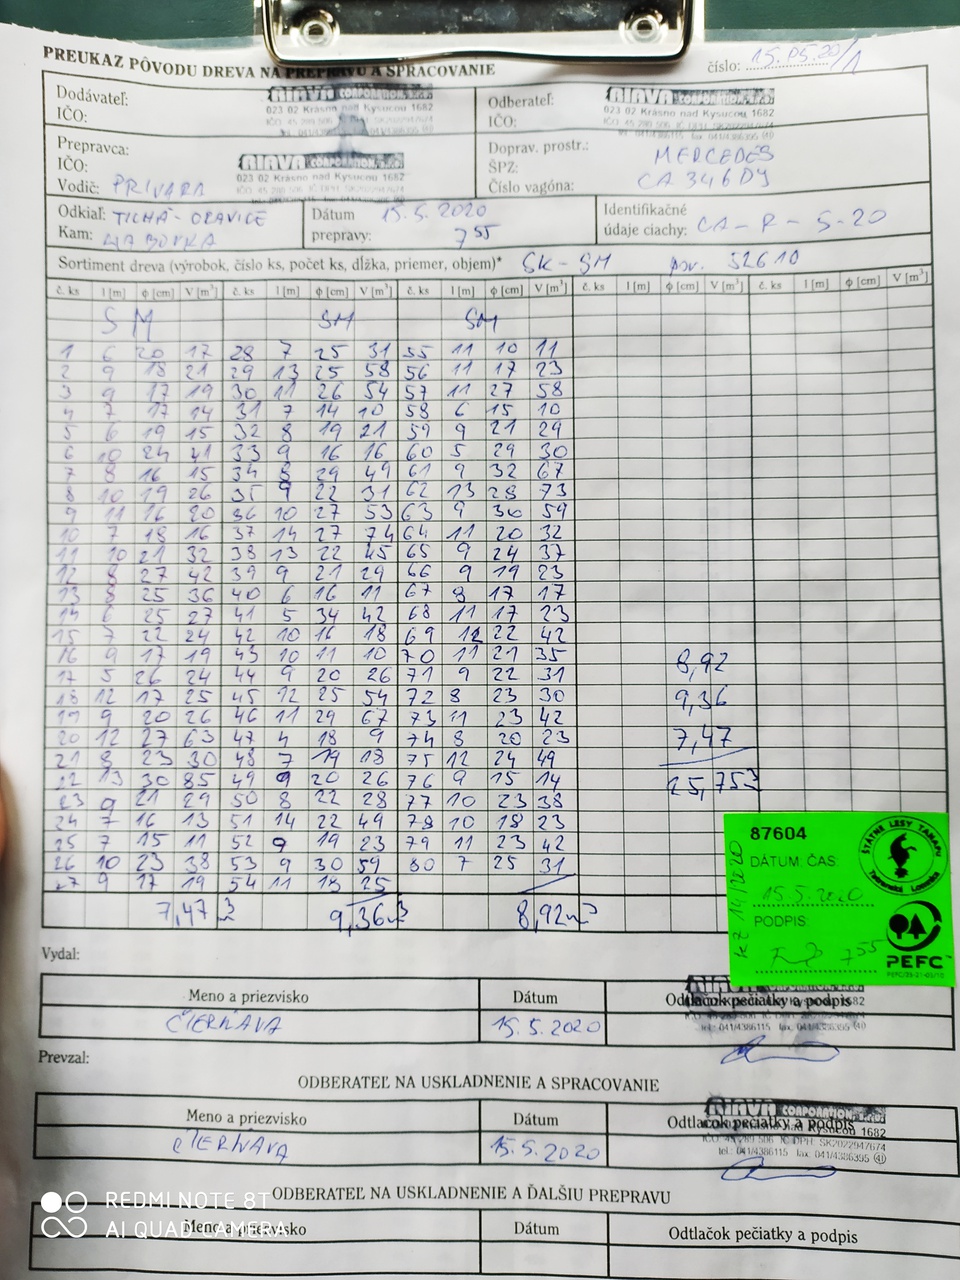 PREUKAZ PÔVODU DREVA NA PREPRAVU A SPRACOVANIE
číslo: 15.05.20/1
Dodávateľ: RIAVA CORPORATION, s.r.o.
IČO: 023 02 Krásno nad Kysucou 1682
Odberateľ: RIAVA CORPORATION, s.r.o.
IČO: 023 02 Krásno nad Kysucou 1682
Prepravca: RIAVA CORPORATION, s.r.o.
IČO: 023 02 Krásno nad Kysucou 1682
Vodič: PRIVARA
Doprav. prostr.: MERCEDES
ŠPZ: CA 346DY
Číslo vagóna:
Odkiaľ: TICHÁ - ORAVICE
Kam:
Dátum prepravy: 15.5.2020 7 55
Identifikačné údaje ciachy: CA - R - S - 20
Sortiment dreva (výrobok, číslo ks, počet ks, dĺžka, priemer, objem)* SK - SM por. 52610
č. ks l [m] ϕ [cm] V [m³] č. ks l [m] ϕ [cm] V [m³] č. ks l [m] ϕ [cm] V [m³] č. ks l [m] ϕ [cm] V [m³] č. ks l [m] ϕ [cm] V [m³]
SM SM SM
1 6 20 17 28 7 25 31 55 11 10 11
2 9 18 21 29 13 25 58 56 11 17 23
3 9 17 19 30 11 26 54 57 11 27 58
4 7 17 14 31 7 14 10 58 6 15 10
5 6 19 15 32 8 19 21 59 9 21 29
6 10 24 41 33 9 16 16 60 5 29 30
7 8 16 15 34 8 29 49 61 9 32 67
8 10 19 26 35 9 22 31 62 13 28 73
9 11 16 20 36 10 27 53 63 9 30 59
10 7 18 16 37 14 27 74 64 11 20 32
11 10 21 32 38 13 22 45 65 9 24 37
12 8 27 42 39 9 21 29 66 9 19 23
13 8 25 36 40 6 16 11 67 8 17 17
14 6 25 27 41 5 34 42 68 11 17 23
15 7 22 24 42 10 16 18 69 12 22 42
16 9 17 19 43 10 11 10 70 11 21 35
17 5 26 24 44 9 20 26 71 9 22 31
18 12 17 25 45 12 25 54 72 8 23 30
19 9 20 26 46 11 29 67 73 11 23 42
20 12 27 63 47 4 18 9 74 8 20 23
21 8 23 30 48 7 19 18 75 12 24 49
22 13 30 85 49 9 20 26 76 9 15 14
23 9 21 29 50 8 22 28 77 10 23 38
24 7 16 13 51 14 22 49 78 10 18 23
25 7 15 11 52 9 19 23 79 11 23 42
26 10 23 38 53 9 30 59 80 7 25 31
27 9 17 19 54 11 18 25
8,92
9,36
7,47
25,75 m³
7,47 m³ 9,36 m³ 8,92 m³
87604
ŠTÁTNE LESY TANAPU
Tatranská Lomnica
DÁTUM, ČAS:
15.5.2020
PODPIS:
7 55
14/2020
PEFC™
Vydal:
Meno a priezvisko Dátum Odtlačok pečiatky a podpis
ČIERŇAVA 15.5.2020
tel.: 041/4386115 fax: 041/4386395
Prevzal:
ODBERATEĽ NA USKLADNENIE A SPRACOVANIE
Meno a priezvisko Dátum Odtlačok pečiatky a podpis
ČIERŇAVA 15.5.2020
RIAVA CORPORATION, s.r.o.
023 02 Krásno nad Kysucou 1682
IČO: 45 289 506 IČ DPH: SK2022947674
tel.: 041/4386115 fax: 041/4386395
ODBERATEĽ NA USKLADNENIE A ĎALŠIU PREPRAVU
Meno a priezvisko Dátum Odtlačok pečiatky a podpis
REDMI NOTE 8T
AI QUAD CAMERA